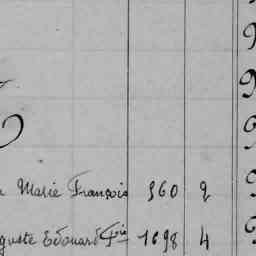 Marie François 360 2
guste Edouard Fois 1698 4